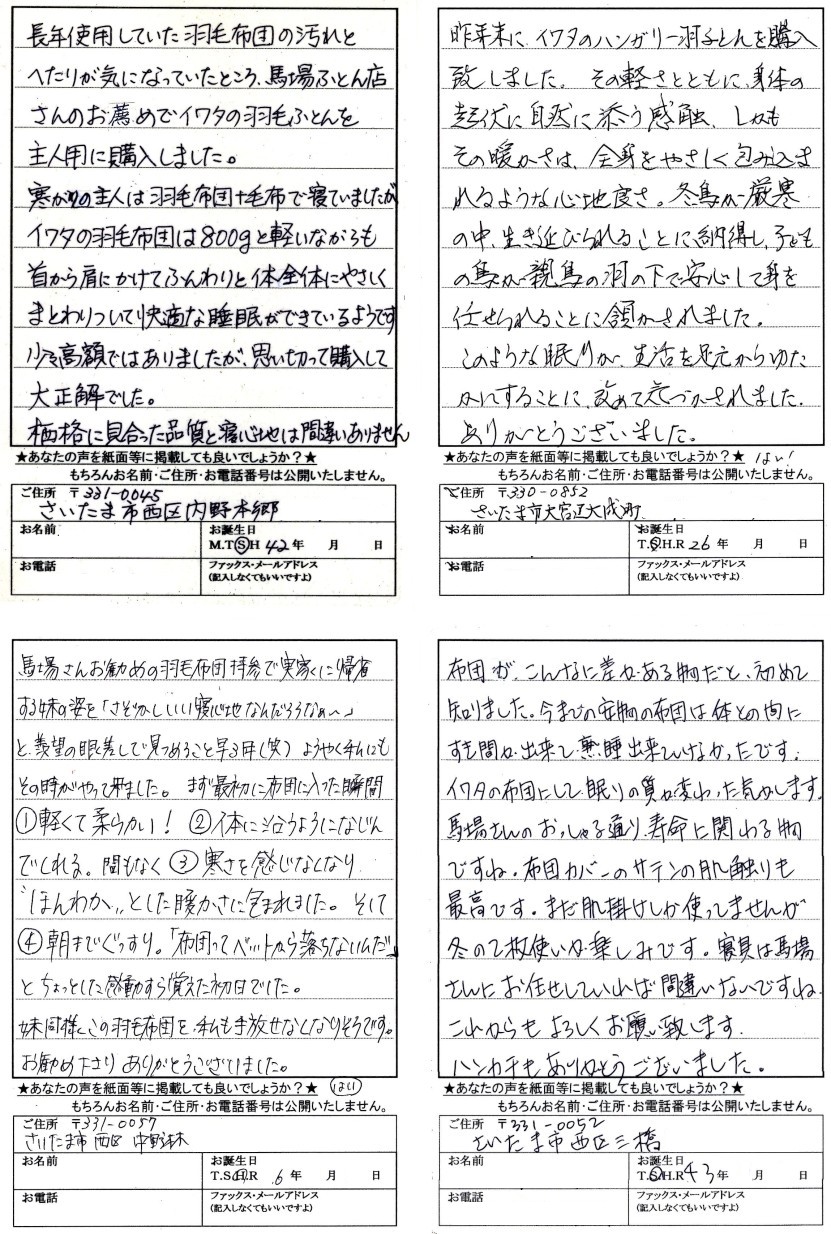 長年使用していた羽毛布団の汚れと
へたりが気になっていたところ、馬場ふとん店
さんのお薦めでイワタの羽毛ふとんを
主人用に購入しました。
寒がりの主人は羽毛布団+毛布で寝ていましたが
イワタの羽毛布団は800gと軽いながらも
首から肩にかけてふんわりと体全体にやさしく
まとわりついて快適な睡眠ができているようです
少々高額ではありましたが、思い切って購入して
大正解でした。
価格に見合った品質と寝心地は間違いありません
★あなたの声を紙面等に掲載しても良いでしょうか?★
もちろんお名前・ご住所・お電話番号は公開いたしません。
ご住所 〒331-0045
さいたま市西区内野本郷
お名前 お誕生日
M.T.S.H 42年 月 日
お電話 ファックス・メールアドレス
(記入しなくてもいいですよ)
昨年末に、イワタのハンガリー羽毛ふとんを購入
致しました。その軽さとともに、身体の
起伏に自然に添う感触、しかも
その暖かさは、全身をやさしく包み込ま
れるような心地良さ。冬鳥が厳寒
の中、生き延びられることに納得し、子ども
の鳥が親鳥の羽の下で安心して身を
任せられることに頷かされました。
このような眠りが、生活を足元からゆた
かにすることに、改めて気づかされました。
ありがとうございました。
★あなたの声を紙面等に掲載しても良いでしょうか?★ はい!
もちろんお名前・ご住所・お電話番号は公開いたしません。
ご住所 〒330-0852
さいたま市大宮区大成町
お名前 お誕生日
T.S.H.R 26年 月 日
お電話 ファックス・メールアドレス
(記入しなくてもいいですよ)
馬場さんお勧めの羽毛布団持参で実家に帰省
する妹の姿を「さぞかしいい寝心地なんだろうなぁ〜」
と羨望の眼差しで見つめること早3年(笑) ようやく私にも
その時がやって来ました。まず最初に布団に入った瞬間
①軽くて柔らかい! ②体に沿うようになじん
でくれる。間もなく③寒さを感じなくなり
"ほんわか〟とした暖かさに包まれました。そして
④朝までぐっすり。「布団ってベットから落ちないんだ」
とちょっとした感動すら覚えた初日でした。
妹同様、この羽毛布団を私も手放せなくなりそうです。
お勧め下さりありがとうございました。
★あなたの声を紙面等に掲載しても良いでしょうか?★ はい
もちろんお名前・ご住所・お電話番号は公開いたしません。
ご住所 〒331-0057
さいたま市西区中野林
お名前 お誕生日
T.S.H.R 6年 月 日
お電話 ファックス・メールアドレス
(記入しなくてもいいですよ)
布団が、こんなに差がある物だと、初めて
知りました。今までの安物の布団は体との間に
すき間が出来て、熟睡出来ていなかったです。
イワタの布団にして、眠りの質が変わった気がします。
馬場さんのおっしゃる通り、寿命に関わる物
ですね。布団カバーのサテンの肌触りも
最高です。まだ肌掛けしか使ってませんが
冬の2枚使いが楽しみです。寝具は馬場
さんにお任せしていれば間違いないですね。
これからもよろしくお願い致します。
ハンカチもありがとうございました。
★あなたの声を紙面等に掲載しても良いでしょうか?★
もちろんお名前・ご住所・お電話番号は公開いたしません。
ご住所 〒331-0052
さいたま市西区三橋
お名前 お誕生日
T.S.H.R 43年 月 日
お電話 ファックス・メールアドレス
(記入しなくてもいいですよ)